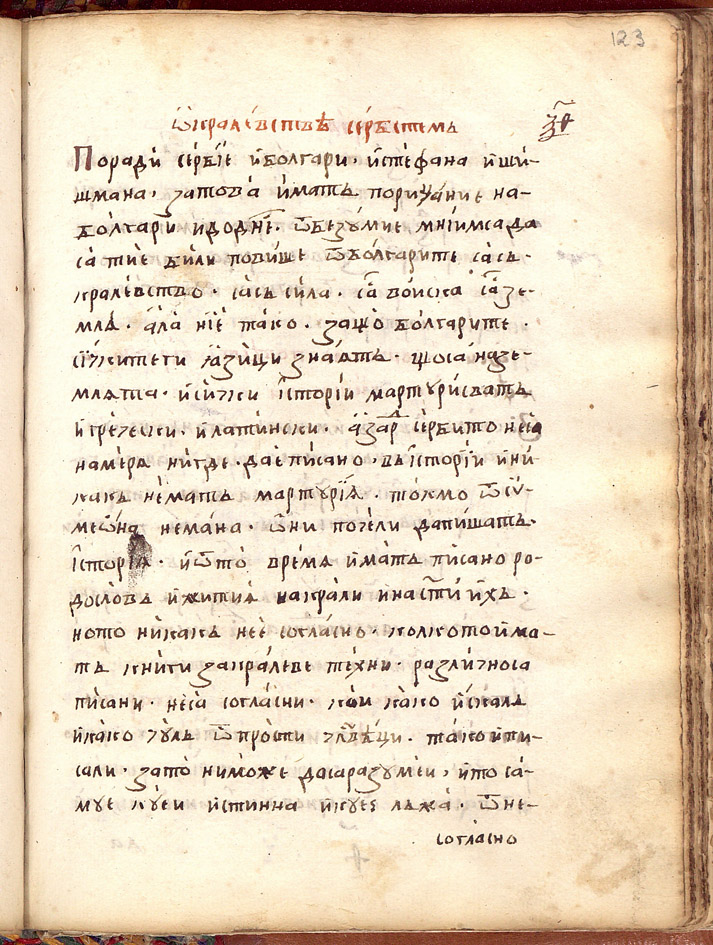 123
ѿ кралевствѣ сербстемъ
Поради сербїе и болгари, и стефана и ши-
шмана, затова имать порицание на-
болгари и до днїе. ѿ безумие мнїимса да
са тие били повише ѿ болгарите са съ-
кралевство. сасъ сила. са воиска са зе-
мля. ала нїе тако. защо болгарите.
сички теги ꙗзици знаать. що са на зе-
млята. и сички їсторїи мартурисвать
и гречески. и латински. а за сербито не са
намерѧ нигде. да е писано, въ їсторїи и ни-
какъ немать мартурїꙗ. токмо ѿ сѵ-
меѡна немана. ѿни почели да пишать.
їсторїꙗ. и ѿ то време имать писано ро-
дословъ и житиѧ на крали и на стїи ихъ.
ното никакъ не е согласно. колкото има-
ть книги за кралеве техни. различно са
писани. не са согласни. кои како искалъ
и како чулъ ѿ прости члвѣци. тако и пи-
сали. зато ни може да са разумеи, и то са-
муе куеи истинна и куе е лъжа. ѿ не-
согласно